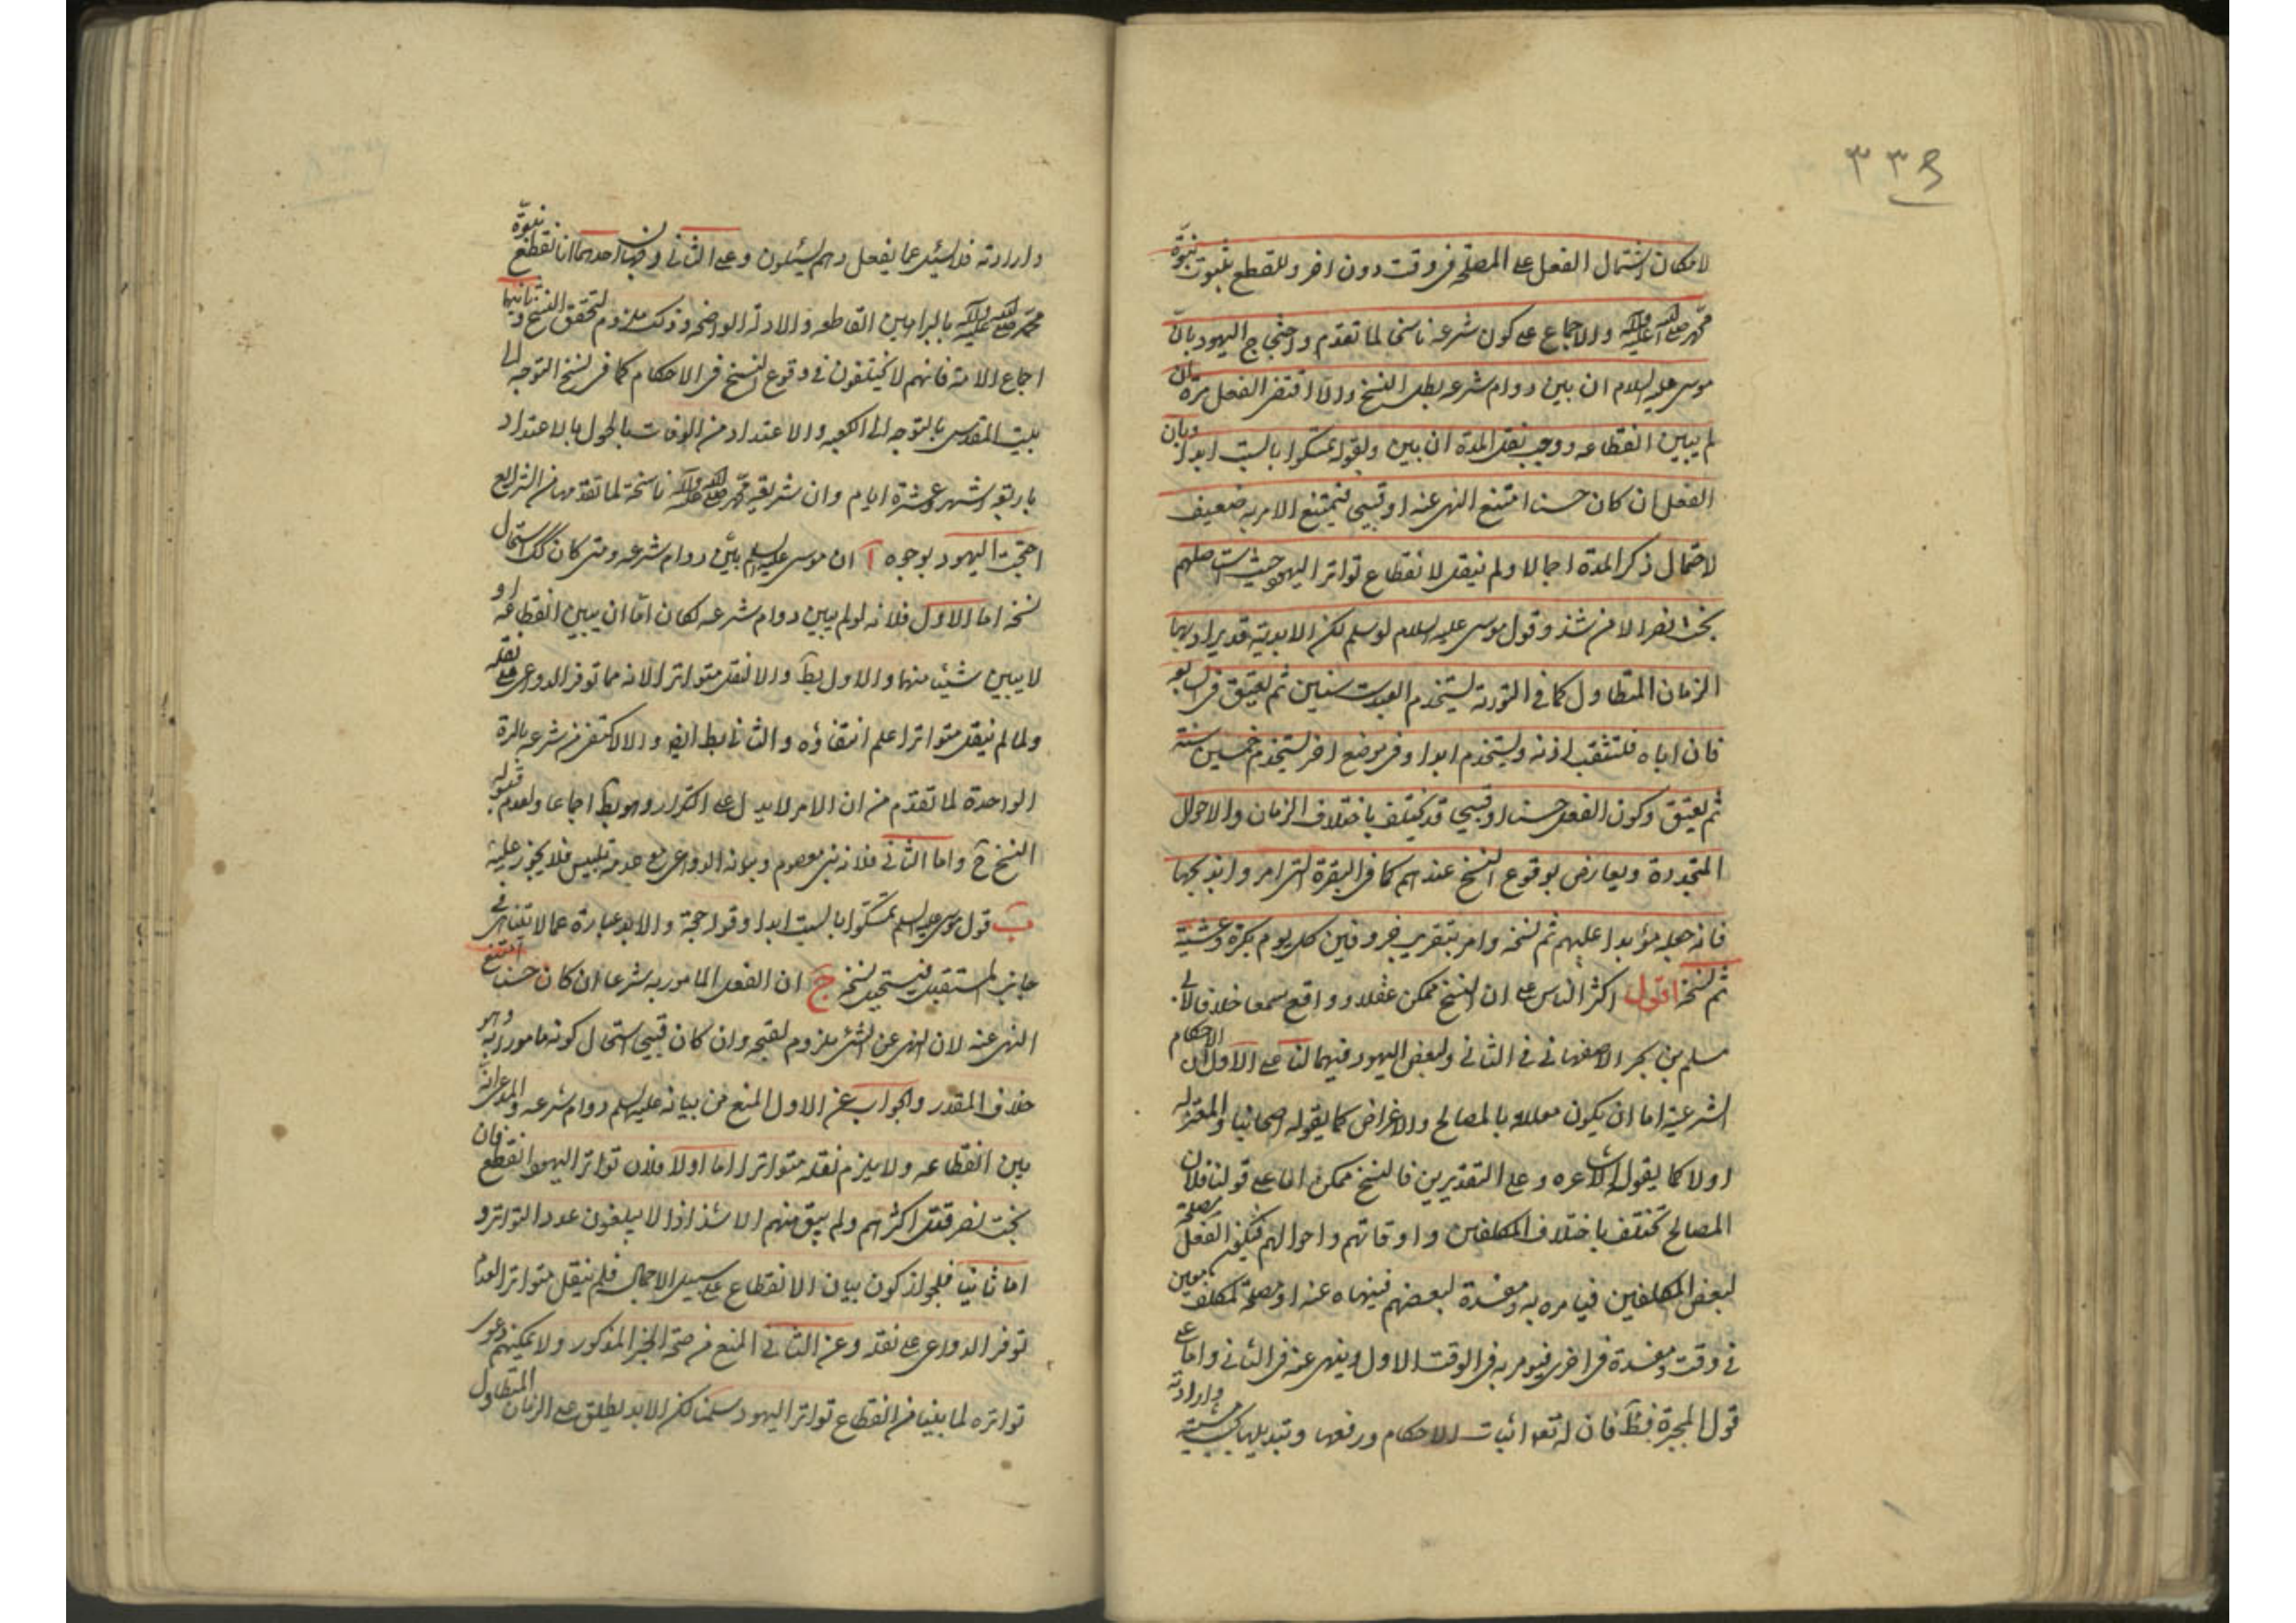 ٣٣٤
لامكان اشتمال الفعل على المصلحة فى وقت دون اخر وللقطع بثبوت نبوّة
محمّد صلى الله عليه وآله والاجماع على كون شرعه ناسخا لما تقدم واحتجاج اليهود بانّ
موسى عليه السلام ان بين دوام شرعه بطل النسخ والا اقتضى الفعل مرّة ان
لم يبين انقطاعه ووجب نقل المدة ان بين ولقوله تمسكوا بالسبت ابدا وبان
الفعل ان كان حسنا امتنع النهى عنه او قبيحا فيمتنع الامر به ضعيف
لاحتمال ذكر المدة اجمالا ولم ينقل لانقطاع تواتر اليهود حيث استاصلهم
بخت نصر الا من شذ وقول موسى عليه السلام لو سلم لكن الابدية قد يراد بها
الزمان المتطاول كما فى التورية يستخدم العبد ست سنين ثم يعتق فى السابعة
فان اباه فلتثقب اذنه ويستخدم ابدا وفى موضع اخر يستخدم خمسين سنة
ثم يعتق وكون الفعل حسنا او قبيحا قد يختلف باختلاف الزمان والاحوال
المتجددة ويعارض بوقوع النسخ عندهم كما فى البقرة التى امروا بذبحها
فانه جعله مؤبدا عليهم ثم نسخه وامر بتقريب خروفين كل يوم بكرة وعشية
ثم نسخه اقول اكثر الناس على ان النسخ ممكن عقلا وواقع سمعا خلافا لابى
مسلم بن بحر الاصفهانى فى الثانى ولبعض اليهود فيهما لنا على الاول ان الاحكام
الشرعية اما ان يكون معللة بالمصالح والاغراض كما يقوله اصحابنا والمعتزلة
او لا كما يقول الاشاعره وعلى التقديرين فالنسخ ممكن اما على قولنا فلان
المصالح تختلف باختلاف المكلفين واوقاتهم واحوالهم فيكون الفعل مصلحة
لبعض المكلفين فيامره به ومفسدة لبعضهم فينهاه عنه او مصلحة لمكلف معين
فى وقت ومفسدة فى اخرى فيومر به فى الوقت الاول وينهى عنه فى الثانى واما على
قول المجبرة فظ فان له تعه اثبات الاحكام ورفعها وتبديلها بحسب مشيته وارادته
وارادته فلا يسئل عما يفعل وهم يسئلون وعلى الثانى وجهان احدهما انا نقطع نبوّة
محمّد صلى الله عليه وآله بالبراهين القاطعه والادلة الواضحه وذلك ملزوم لتحقق النسخ وثانيها
اجماع الامة فانهم لا يختلفون فى وقوع النسخ فى الاحكام كما فى نسخ التوجه الى
بيت المقدس بالتوجه الى الكعبه والاعتداد من الوفات بالحول بالاعتداد
باربعة اشهر وعشرة ايام وان شريعة محمّد صلى الله عليه وآله ناسخة لما تقدمها من الشرايع
احتجت اليهود بوجوه آ ان موسى عليه السلم بيّن دوام شرعه ومتى كان كك استحال
نسخه اما الاول فلانه لو لم يبين دوام شرعه لكان امّا ان يبين انقطاعه او
لا يبين شيئا منهما والاول بط والا نقل متواترا لانه مما توفر الدواعى على نقله
ولما لم ينقل متواترا علم انتفاؤه والثانى بط ايض والا لاكتفى من شرعه بالمرة
الواحدة لما تقدم من ان الامر لا يدل على التكرار وهو بط اجماعا ولعدم قبوله
النسخ ح واما الثانى فلانه نبى معصوم وبيانه الدوام مع عدمه تلبيس فلا يجوز عليه
ب قول موسى عليه السلم تمسكوا بالسبت ابدا وقوله حجة والابد عبارة عما لا يتناهى فى
جانب المستقبل فيستحيل نسخه ج ان الفعل المامور به شرعا ان كان حسنا امتنع
النهى عنه لان النهى عن الشئ ملزوم لقبحه وان كان قبيحا استحال كونه مامورا به وهو
خلاف المقدر والجواب عن الاول المنع من بيانه عليه السلم دوام شرعه والمدعى انه
بين انقطاعه ولا يلزم نقله متواترا اما اولا فلان تواتر اليهود انقطع فان
بخت نصر قتل اكثرهم ولم يبق منهم الا شذاذا لا يبلغون عدد التواتر و
اما ثانيا فلجواز كون بيان الانقطاع على سبيل الاجمال فلم ينقل متواترا لعدم
توفر الدواعى على نقله وعن الثانى المنع من صحة الخبر المذكور ولا يمكنهم دعوى
تواتره لما بينا من انقطاع تواتر اليهود سلمنا لكن الابد يطلق على الزمان المتطاول